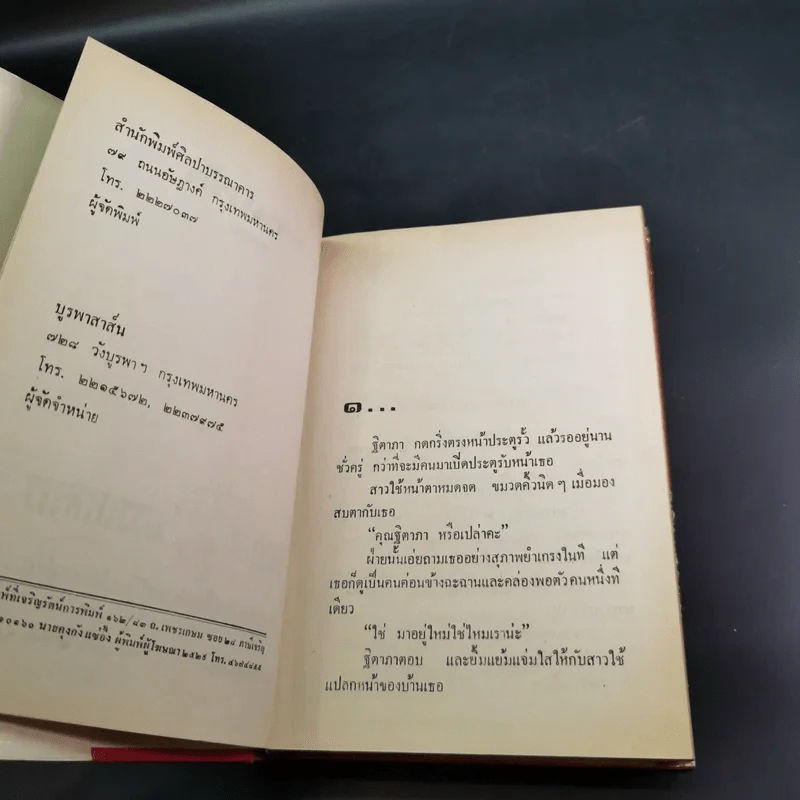 สำนักพิมพ์ศิลปาบรรณาคาร
๗๙ ถนนอัษฎางค์ กรุงเทพมหานคร
โทร. ๒๒๒๗๐๓๗
ผู้จัดพิมพ์
บูรพาสาส์น
๗๒๘ วังบูรพา ฯ กรุงเทพมหานคร
โทร. ๒๒๑๕๖๗๒, ๒๒๓๗๙๗๕
ผู้จัดจำหน่าย
พ์ที่เจริญรัตน์การพิมพ์ ๑๖๒/๘๓ ถ. เพชรเกษม ซอย ๒๘ ภาษีเจริญ
๑๐๑๖๐ นายคุงกัง แซ่อึ้ง ผู้พิมพ์ผู้โฆษณา ๒๕๒๙ โทร.
๑...
ฐิตาภา กดกริ่งตรงหน้าประตูรั้ว แล้วรออยู่นาน
ชั่วครู่ กว่าที่จะมีคนมาเปิดประตูรับหน้าเธอ
สาวใช้หน้าตาหมดจด ขมวดคิ้วนิด ๆ เมื่อมอง
สบตากับเธอ
“คุณฐิตาภา หรือเปล่าคะ”
ฝ่ายนั้นเอ่ยถามเธออย่างสุภาพยำเกรงในที แต่
เธอก็ดูเป็นคนค่อนข้างฉะฉานและคล่องพอตัวคนหนึ่งที
เดียว
“ใช่ มาอยู่ใหม่ใช่ไหมเราน่ะ”
ฐิตาภาตอบ และยิ้มแย้มแจ่มใสให้กับสาวใช้
แปลกหน้าของบ้านเธอ